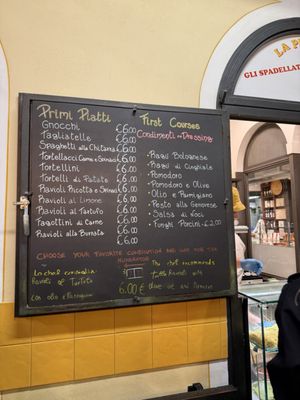 LA P
GLI SPADELLAT
Primi Piatti
Gnocchi €6.00
Tagliatelle €6.00
Spaghetti alla Chitarra €6.00
Tortellacci Carne e Spinaci €6.00
Tortellini €6.00
Tortelli di Patate €6.00
Ravioli Ricotta e Spinaci €6.00
Ravioli al Limone €6.00
Ravioli al Tartufo €6.00
Fagottini di Carne €6.00
Ravioli alla Burrata €6.00
€6.00
First Courses
Condimenti - Dressing
• Ragù Bolognese
• Ragù di Cinghiale
• Pomodoro
• Pomodoro e Olive
• Olio e Parmigiano
• Pesto alla Genovese
• Salsa di Noci
• Funghi Porcini + €2,00
CHOOSE YOUR FAVORITE COMBINATION AND
Lo chef consiglia:
Ravioli al Tartufo
con olio e Parmigiano
6.00 €
The chef recommends
truffle Ravioli with
olive oil and Parmesan